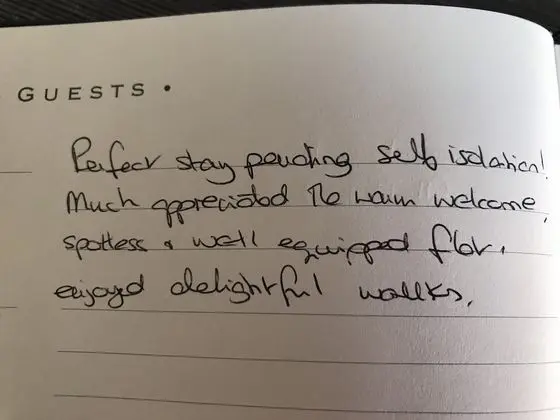 GUESTS •
Perfect stay pending self isolation!
Much appreciated the warm welcome,
spotless & well equipped flat,
enjoyed delightful walks.